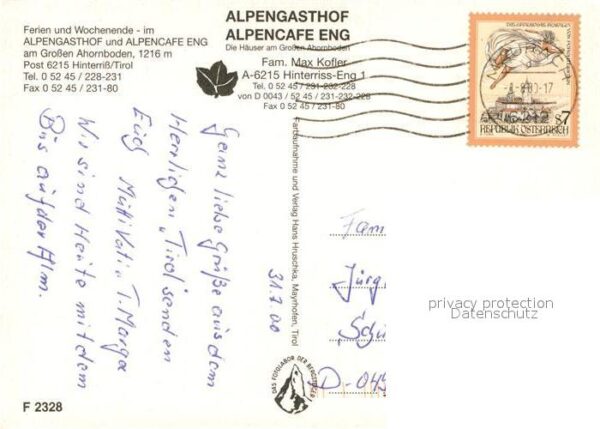 Ferien und Wochenende - im
ALPENGASTHOF und ALPENCAFE ENG
am Großen Ahornboden, 1216 m
Post 6215 Hinterriß/Tirol
Tel. 0 52 45 / 228-231
Fax 0 52 45 / 231-80
ALPENGASTHOF
ALPENCAFE ENG
Die Häuser am Großen Ahornboden
Fam. Max Kofler
A-6215 Hinterriss-Eng 1
Tel. 0 52 45 / 231-232-228
von D 0043 / 52 45 / 231-232-228
Fax 0 52 45 / 231-80
S7
REPUBLIK ÖSTERREICH
Ganz liebe Grüße aus dem
Herrlichen "Tirol" senden
Euch Mutti Vati u. T. Marga
Wir sind Heute mit dem
Bus auf der Alm.
31.7.00
Farbaufnahme und Verlag Hans Hruschka, Mayrhofen, Tirol
DAS FOTOLABOR DER BERGSTEIGER
Fam
Jürg
"Schü
D-049
privacy protection
Datenschutz
F 2328